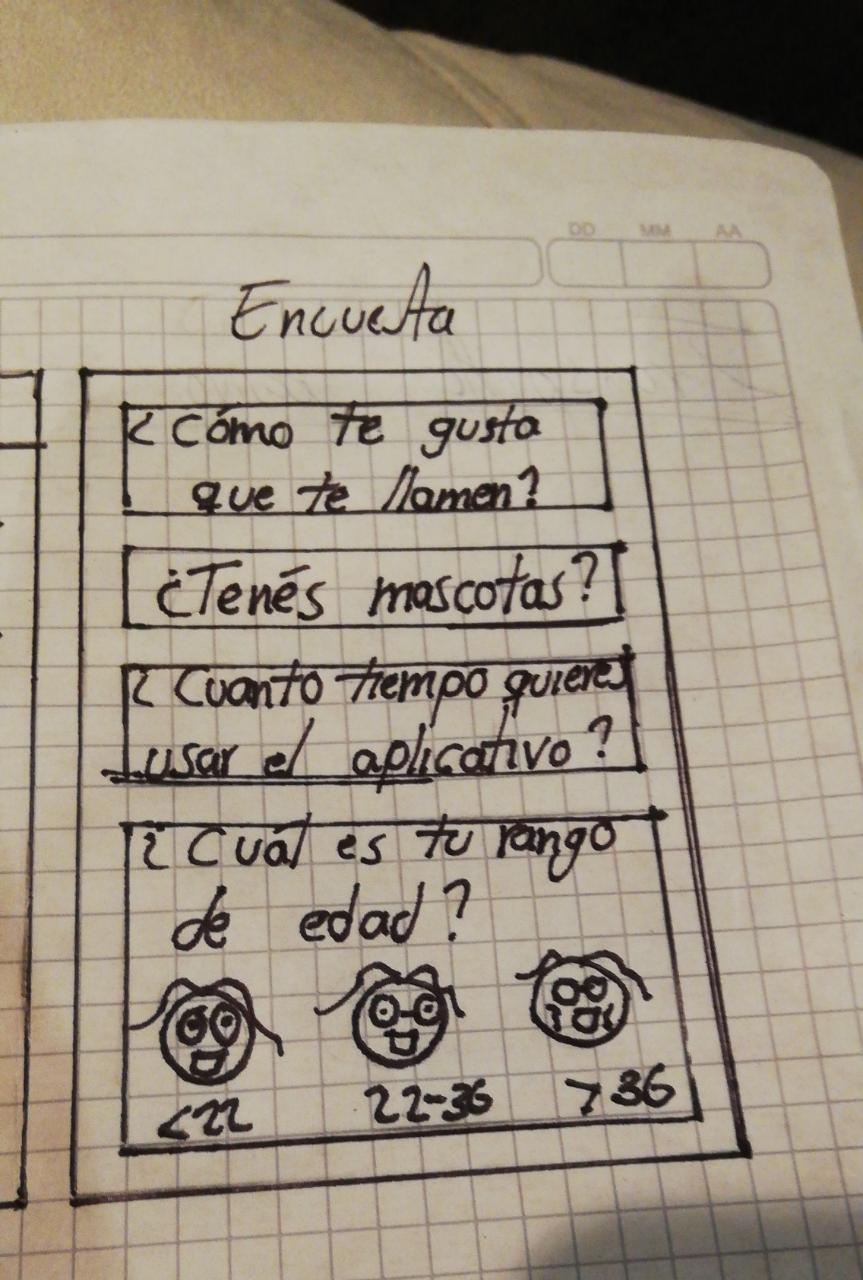 DD MM AA
Encuesta
¿Cómo te gusta
que te llamen?
¿Tenés mascotas?
¿Cuanto tiempo quieres
usar el aplicativo?
¿Cuál es tu rango
de edad?
<22 22-36 >36